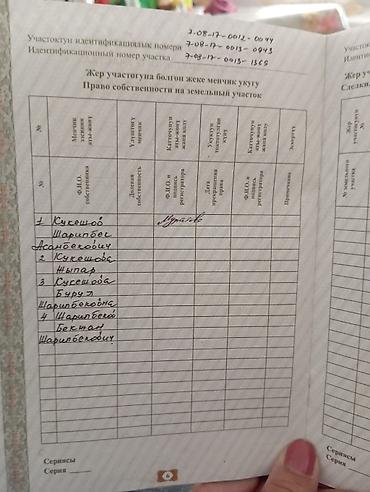 7-08-17-0012-0044
Участоктун идентификациялык номери 7-08-17-0013-0943
Идентификационный номер участка 7-08-17-0013-1365
Жер участогуна болгон жеке менчик укугу
Право собственности на земельный участок
№
Менчик ээсинин аты-жөнү
Үлүштүү менчик
Каттоочунун аты-жөнү жана колу
Укуктун токтотулган күнү
Каттоочунун аты-жөнү жана колу
Эскертүү
№
Ф.И.О. собственника
Долевая собственность
Ф.И.О. и подпись регистратора
Дата прекращения права
Ф.И.О. и подпись регистратора
Примечание
1 Кукешов
Шарипбек
Асанбекович
2 Кукешова
Жыпар
3 Кукешова
Бурул
Шарипбековна
4 Шарипбеков
Бекжан
Шарипбекович
Сериясы
Серия
6
№
Жер участогунун
№ земельного участка
Сериясы
Серия